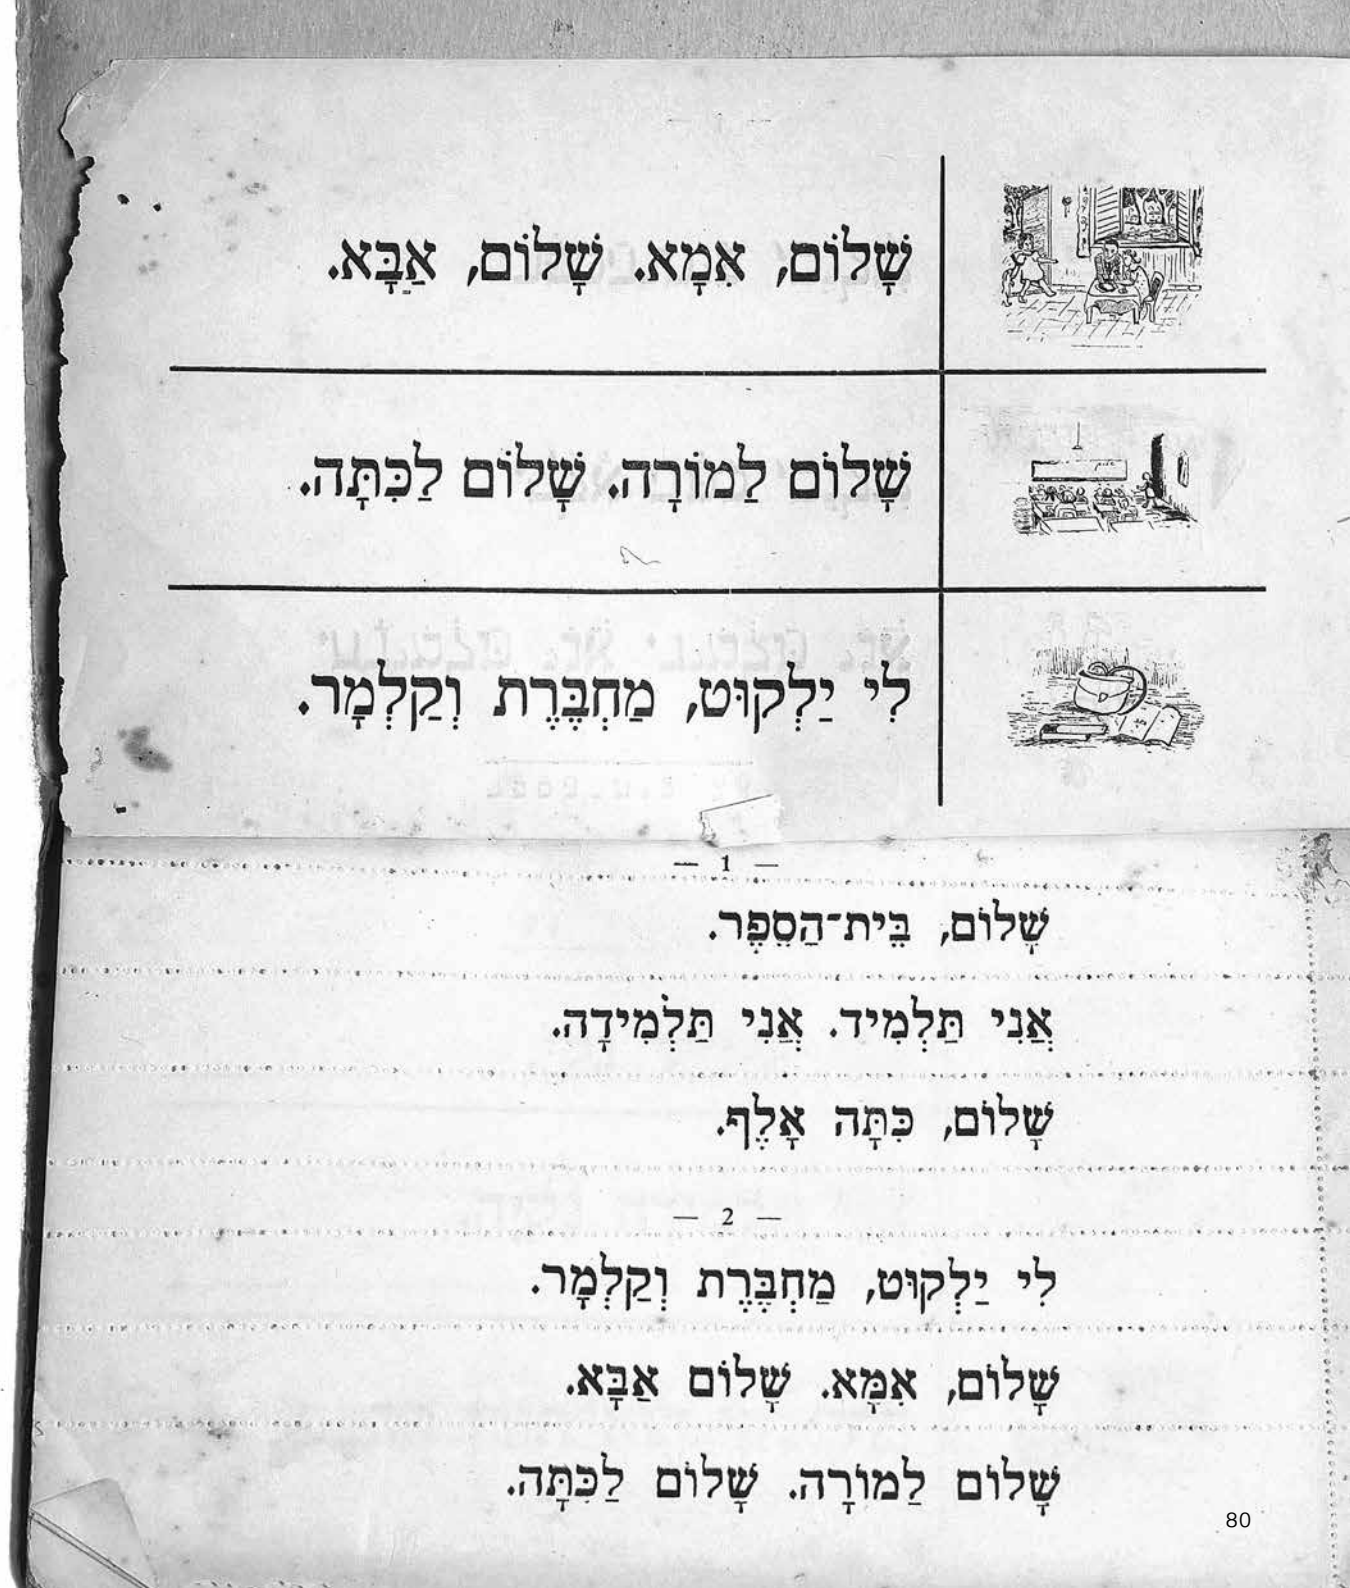 שָׁלוֹם, אִמָּא. שָׁלוֹם, אַבָּא.
שָׁלוֹם לַמּוֹרָה. שָׁלוֹם לַכִּתָּה.
לִי יַלְקוּט, מַחְבֶּרֶת וְקַלְמָר.
— 1 —
שָׁלוֹם, בֵּית־הַסֵּפֶר.
אֲנִי תַּלְמִיד. אֲנִי תַּלְמִידָה.
שָׁלוֹם, כִּתָּה אָלֶף.
— 2 —
לִי יַלְקוּט, מַחְבֶּרֶת וְקַלְמָר.
שָׁלוֹם, אִמָּא. שָׁלוֹם אַבָּא.
שָׁלוֹם לַמּוֹרָה. שָׁלוֹם לַכִּתָּה.
80